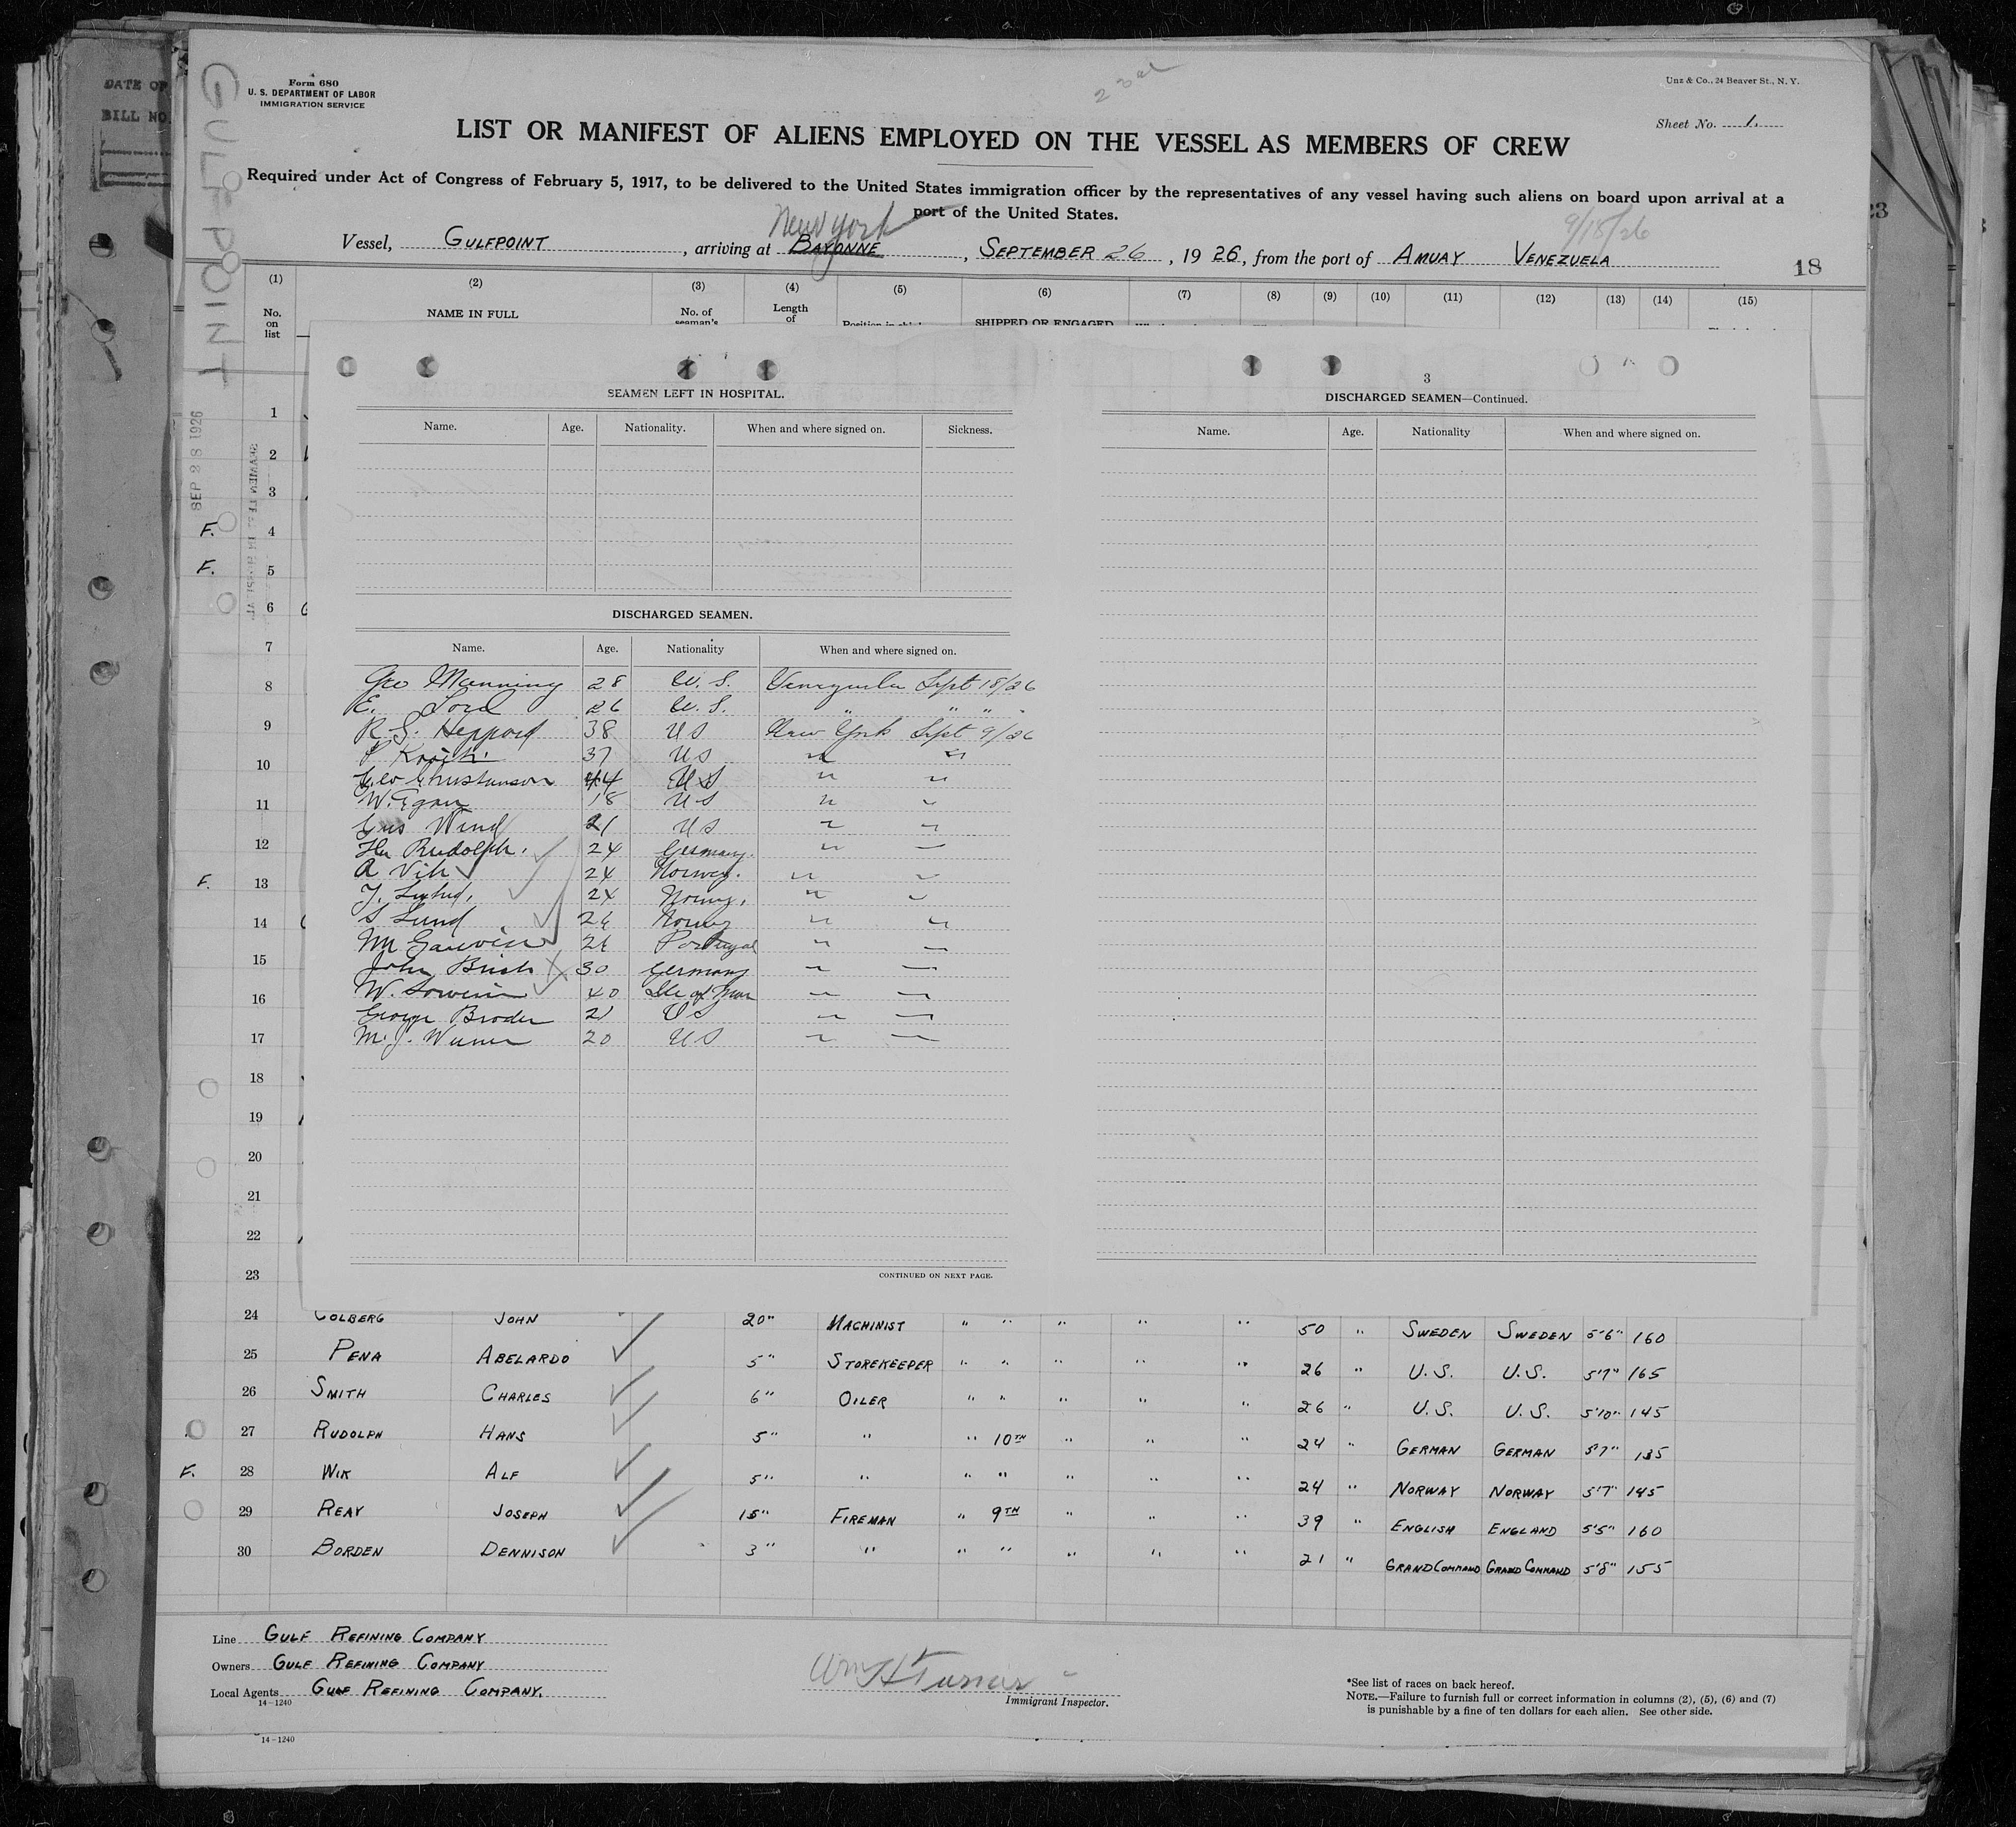 DATE OF
BILL NO.
GULFPOINT
Form 680
U. S. DEPARTMENT OF LABOR
IMMIGRATION SERVICE
Unz & Co., 24 Beaver St., N. Y.
Sheet No. 1.
LIST OR MANIFEST OF ALIENS EMPLOYED ON THE VESSEL AS MEMBERS OF CREW
Required under Act of Congress of February 5, 1917, to be delivered to the United States immigration officer by the representatives of any vessel having such aliens on board upon arrival at a
port of the United States.
New York 9/18/26
Vessel, GULFPOINT, arriving at BAYONNE, SEPTEMBER 26, 1926, from the port of AMUAY VENEZUELA
18
(1) (2) (3) (4) (5) (6) (7) (8) (9) (10) (11) (12) (13) (14) (15)
No. on list NAME IN FULL No. of seaman's Length of SHIPPED OR ENGAGED
SEP 28 1926
3
SEAMEN LEFT IN HOSPITAL. DISCHARGED SEAMEN—Continued.
Name. Age. Nationality. When and where signed on. Sickness. Name. Age. Nationality When and where signed on.
1
2
3
F. 4
F. 5
6
7
8
9
10
11
12
F. 13
14
15
16
17
18
19
20
21
22
23
DISCHARGED SEAMEN.
Name. Age. Nationality When and where signed on.
Geo Manning 28 U. S. Venezuela Sept 18/26
E. Lord 26 U. S. " " " "
R. S. Heppord 38 US New York Sept 9/26
37 US " "
Geo Christianson 44 US " "
W. Egan 18 US " "
Gus Wind 21 US " "
Hn Rudolph. 24 Germany. " "
A Vik 24 Norway. " "
24 Norway. " "
S Lund Norway " "
Portugal " "
John 30 Germany " "
W. 40 Isle of Man " "
George Broder 21 US " "
M. J. 20 US " "
CONTINUED ON NEXT PAGE.
24 COLBERG JOHN 20" MACHINIST " " " " " 50 " SWEDEN SWEDEN 5'6" 160
25 PENA ABELARDO 5" STOREKEEPER " " " " " 26 " U.S. U.S. 5'7" 165
26 SMITH CHARLES 6" OILER " " " " " 26 " U.S. U.S. 5'10" 145
27 RUDOLPH HANS 5" " " 10TH " " " 24 " GERMAN GERMAN 5'7" 135
F. 28 WIK ALF 5" " " " " " " 24 " NORWAY NORWAY 5'7" 145
29 REAY JOSEPH 15" FIREMAN " 9TH " " " 39 " ENGLISH ENGLAND 5'5" 160
30 BORDEN DENNISON 3" " " " " " " 21 " GRAND COMMAND GRAND COMMAND 5'8" 155
Line GULF REFINING COMPANY
Owners GULF REFINING COMPANY
Local Agents GULF REFINING COMPANY.
14-1240
Wm H Turner
Immigrant Inspector.
*See list of races on back hereof.
NOTE.—Failure to furnish full or correct information in columns (2), (5), (6) and (7)
is punishable by a fine of ten dollars for each alien. See other side.
14-1240